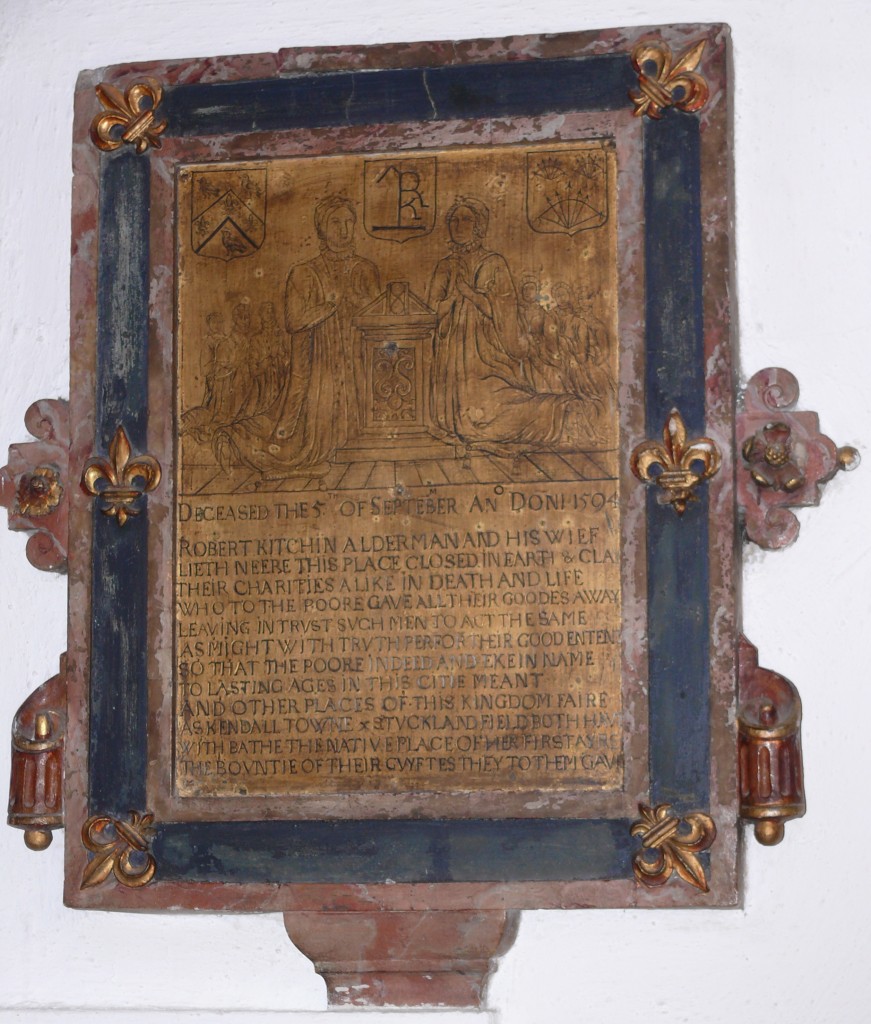 RK
DECEASED THE 5TH OF SEPTEBER ANO DONI 1594
ROBERT KITCHIN ALDERMAN AND HIS WIEF
LIETH NEERE THIS PLACE CLOSED IN EARTH & CLA
THEIR CHARITIES ALIKE IN DEATH AND LIFE
WHO TO THE POORE GAVE ALL THEIR GOODES AWAY
LEAVING IN TRVST SVCH MEN TO ACT THE SAME
AS MIGHT WITH TRVTH PERFOR THEIR GOOD ENTENT
SO THAT THE POORE INDEED AND EKE IN NAME
TO LASTING AGES IN THIS CITIE MEANT
AND OTHER PLACES OF THIS KINGDOM FAIRE
AS KENDALL TOWNE & STVCKLAND FIELD BOTH HAVE
WITH BATHE THE NATIVE PLACE OF HER FIRST AYRE
THE BOVNTIE OF THEIR GWFTES THEY TO THEM GAVE